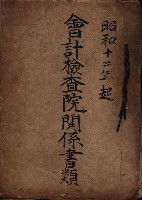 昭和十二年起
會計檢査院關係書類